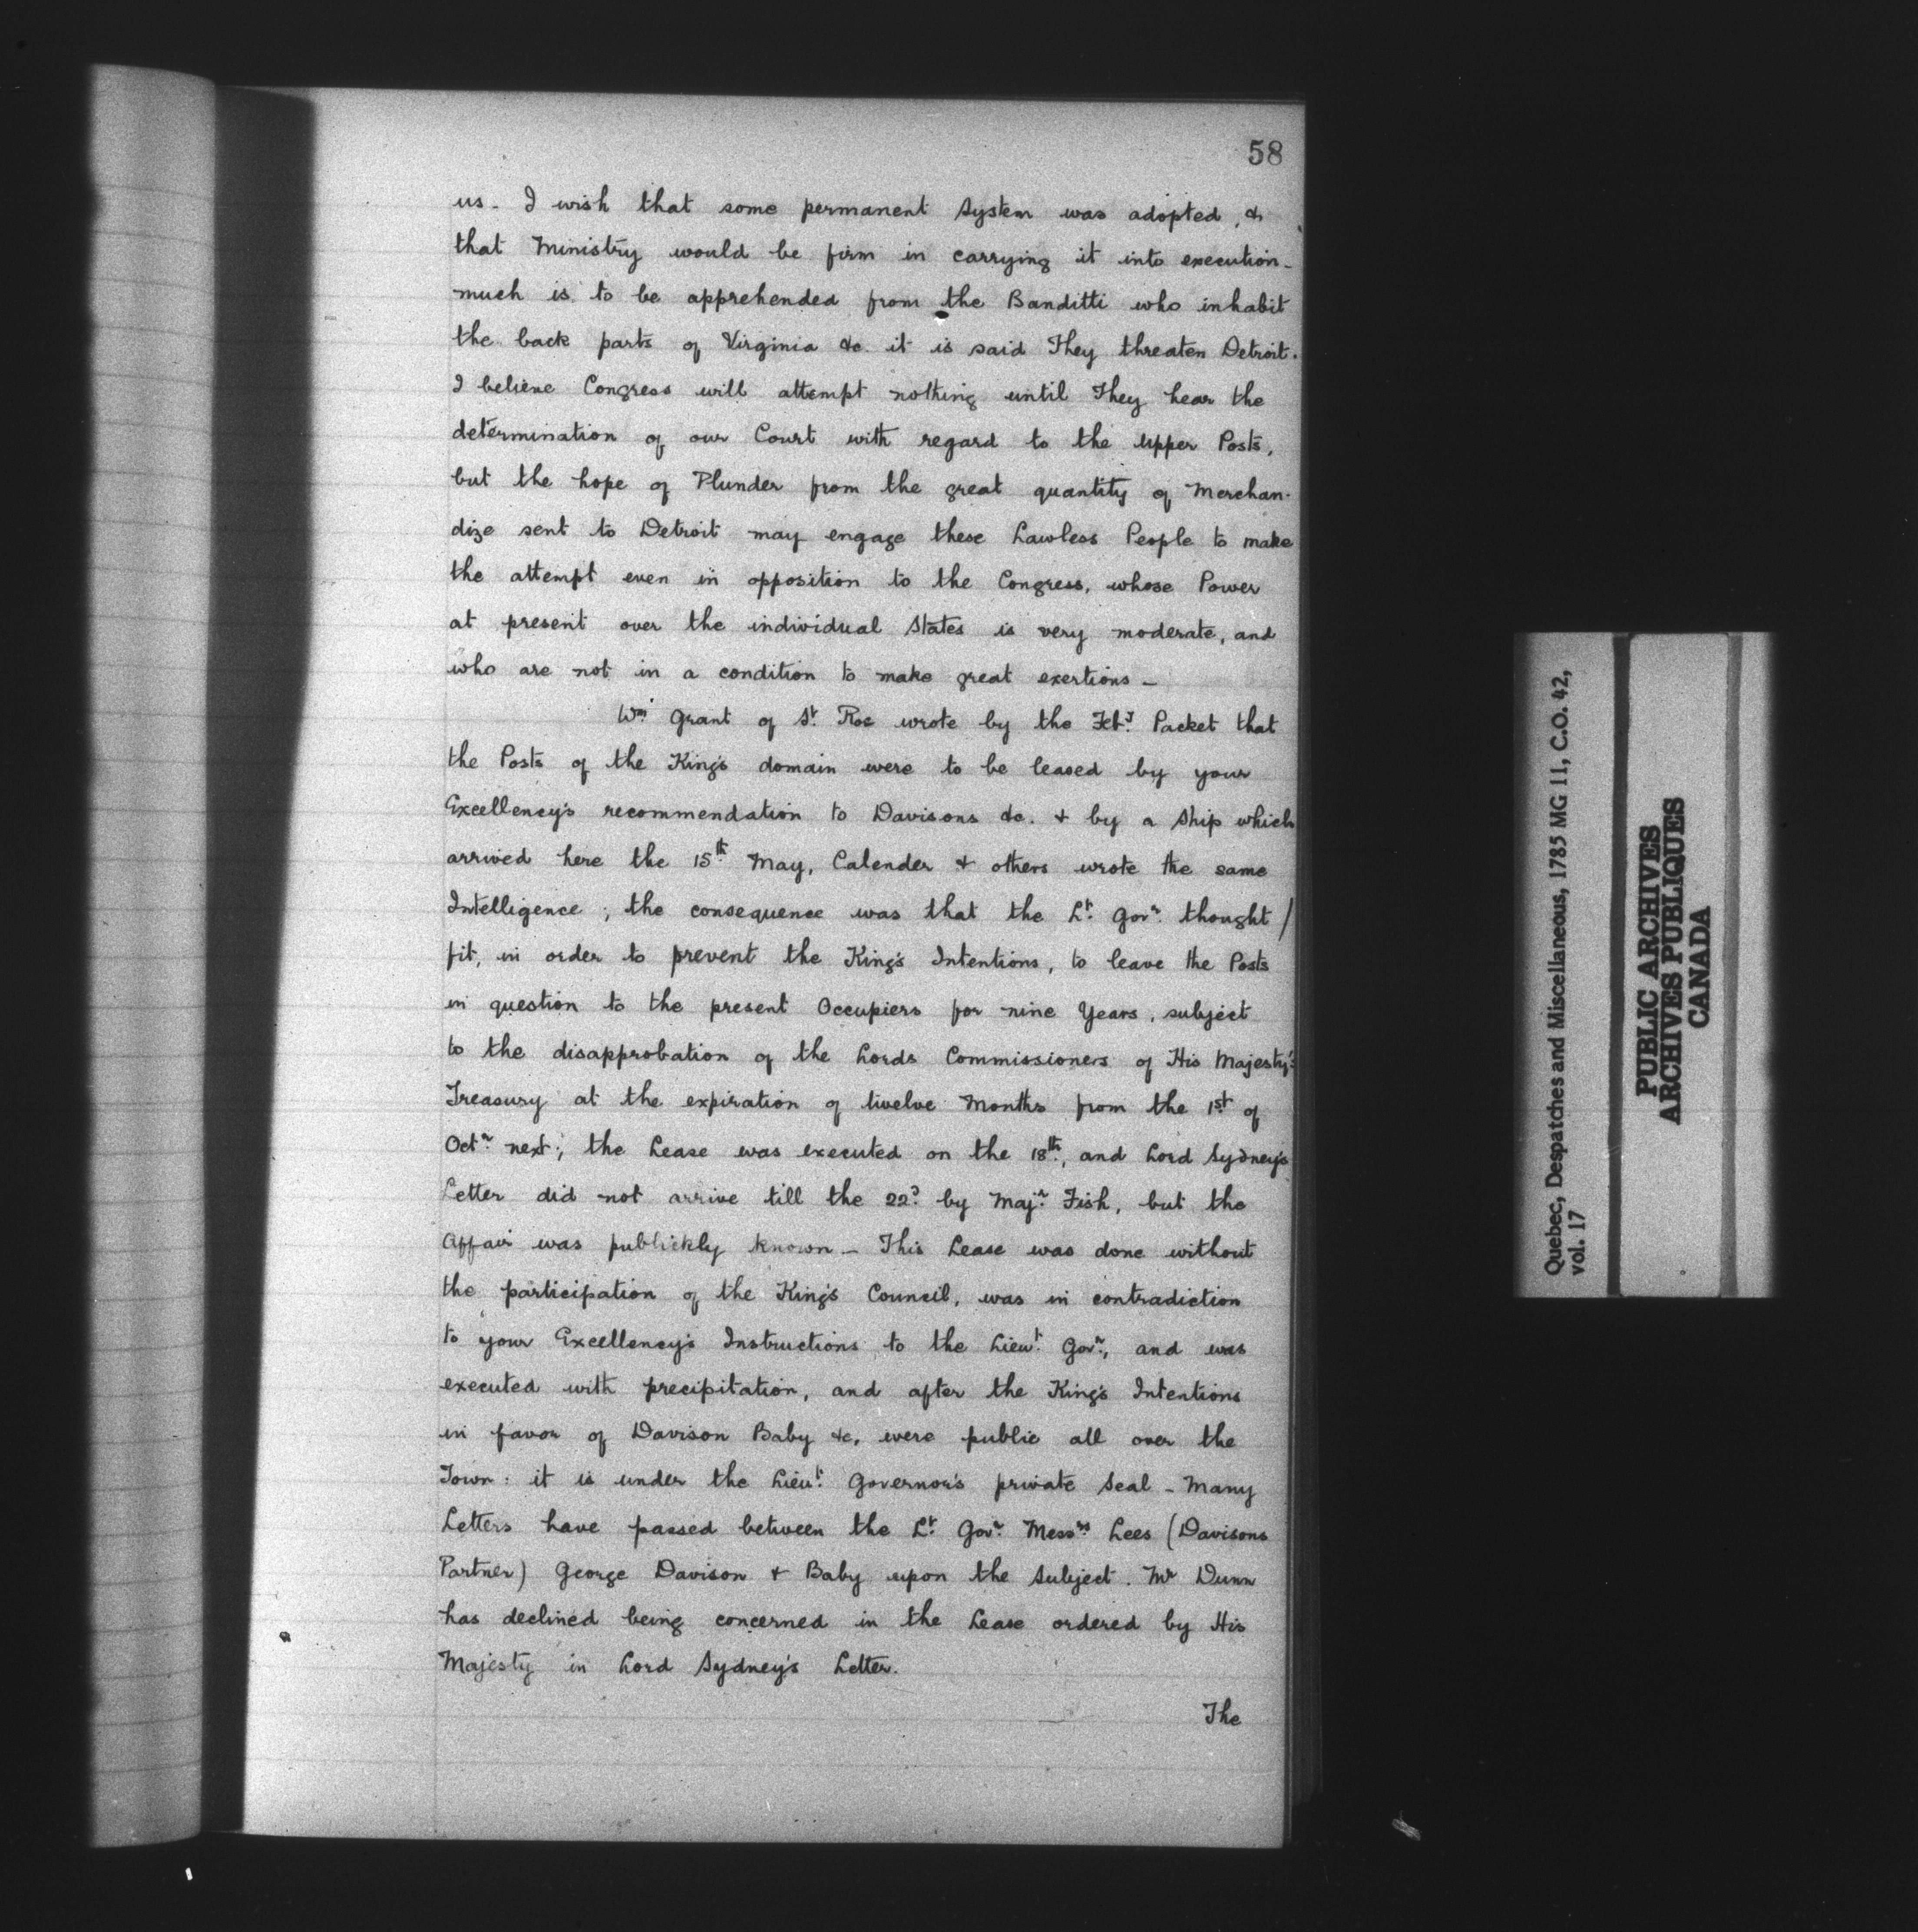 58
us - I wish that some permanent System was adopted, &
that Ministry would be firm in carrying it into execution -
much is to be apprehended from the Banditti who inhabit
the back parts of Virginia &c. it is said They threaten Detroit.
I believe Congress will attempt nothing until They hear the
determination of our Court with regard to the Upper Posts,
but the hope of Plunder from the great quantity of Merchan-
dize sent to Detroit may engage these Lawless People to make
the attempt even in opposition to the Congress, whose Power
at present over the individual States is very moderate, and
who are not in a condition to make great exertions -
Wm Grant of St. Roc wrote by the Feby. Packet that
the Posts of the King's domain were to be leased by your
Excellency's recommendation to Davisons &c. & by a Ship which
arrived here the 15th May, Calender & others wrote the same
Intelligence; the consequence was that the Lt. Govr. thought /
fit, in order to prevent the King's Intentions, to leave the Posts
in question to the present Occupiers for nine Years, subject
to the disapprobation of the Lords Commissioners of His Majesty's
Treasury at the expiration of twelve Months from the 1st of
Octr. next; the Lease was executed on the 18th, and Lord Sydney's
Letter did not arrive till the 22d by Majr. Fish, but the
Affair was publickly known - This Lease was done without
the participation of the King's Council, was in contradiction
to your Excellency's Instructions to the Lieut. Govr., and was
executed with precipitation, and after the King's Intentions
in favor of Davison Baby &c, were public all over the
Town: it is under the Lieut. Governor's private Seal - Many
Letters have passed between the Lt. Govr. Messrs Lees (Davisons
Partner) George Davison & Baby upon the Subject. Mr Dunn
has declined being concerned in the Lease ordered by His
Majesty in Lord Sydney's Letter.
The
Quebec, Despatches and Miscellaneous, 1785 MG 11, C.O. 42,
vol. 17
PUBLIC ARCHIVES
ARCHIVES PUBLIQUES
CANADA